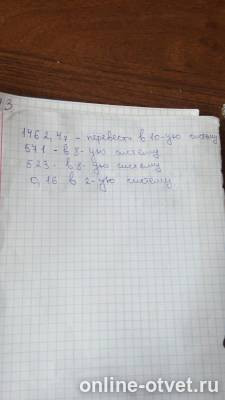 3
1462,47 - перевести в 10-ую систему
571 - в 8-ую систему
523 - в 8-ую систему
0,16 в 2-ую систему
online-otvet.ru